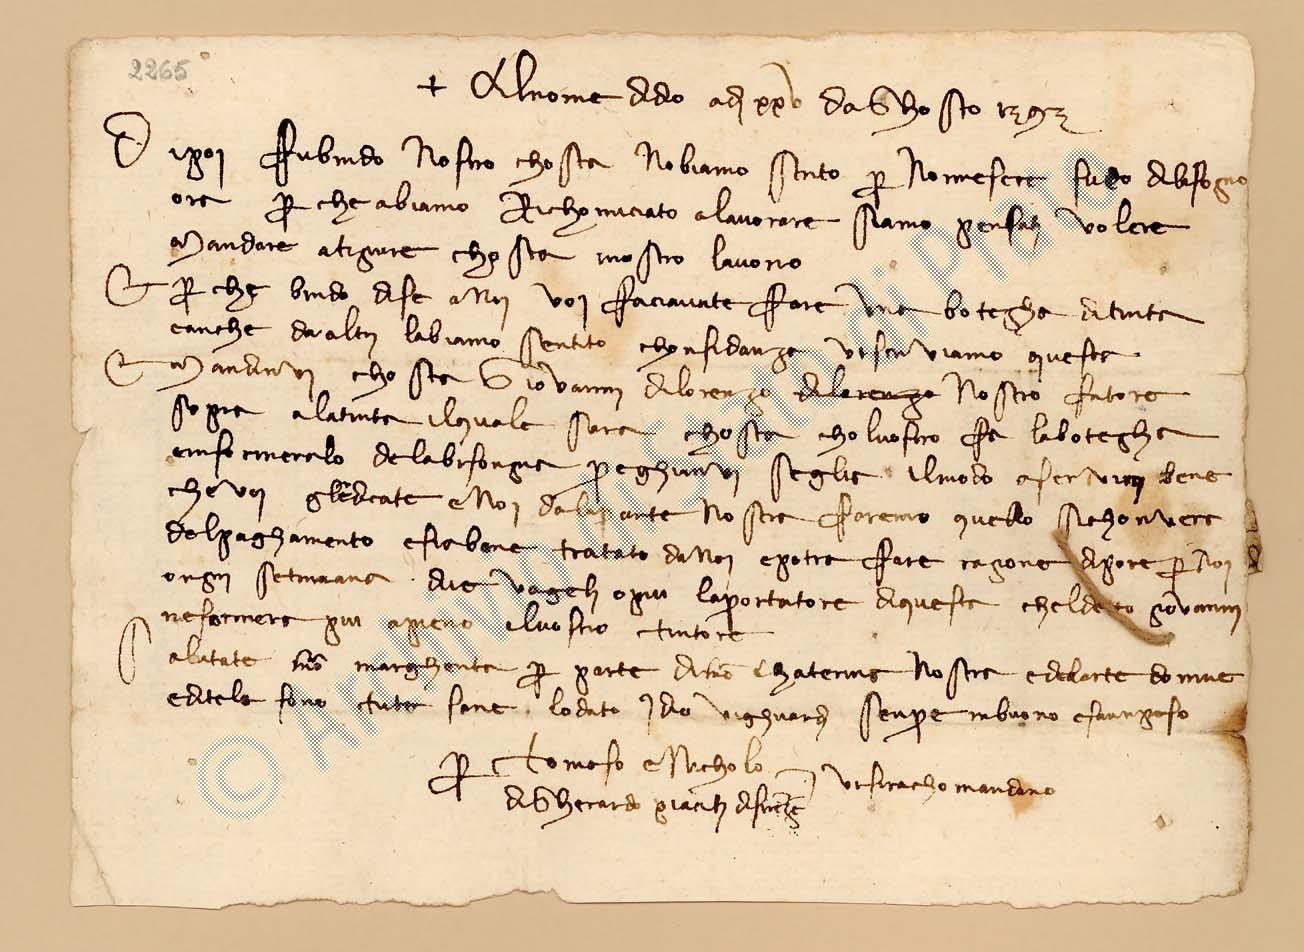 2265
+ Al nome di dio adj xxv daGhosto 1393
Dipoi Fu bindo Nostro chosta Nobiamo scrito p(er) Nonnesere suto di bisogno
ora p(er) che abiamo Richominciato a lavorare siamo pensatj volere
Mandare a tigniere chosta nostro lavoro
E p(er) che bindo dise a Noi voi Faciavate Fare una botegha di tinta
e anche da altri labiamo sentito chonfidanza vi scriviamo questa
E Mandianvi chosta Giovanni di lorenzo di lorenzo Nostro Fatore
sopra a la tinta il quale sara chosta chol vostro Fa la botegha
e informeralo de la bisongna p(r)eghianvi seglie il modo a servirci bene
che voi gle dicate e Noi da la parte Nostra Faremo quello si chonvera
del paghamento e fia bene tratato da Noi e potra Fare ragione di pore p(er) Noi
ongni setimana due vagelj o piu la portatore di questa chel deto giovanni
ne formera piu a pieno il vostro tintore
Salutate margherita p(er) parte di Chaterina Nostra e de larte donne
e ditele sono tute sane lodato Idio vi ghuardj senpre in buono e santo
p(er) Tomaso e Nicholo
di Gherardo piacitj di firenze vi si racho mandano
© Archivio di Stato di Prato